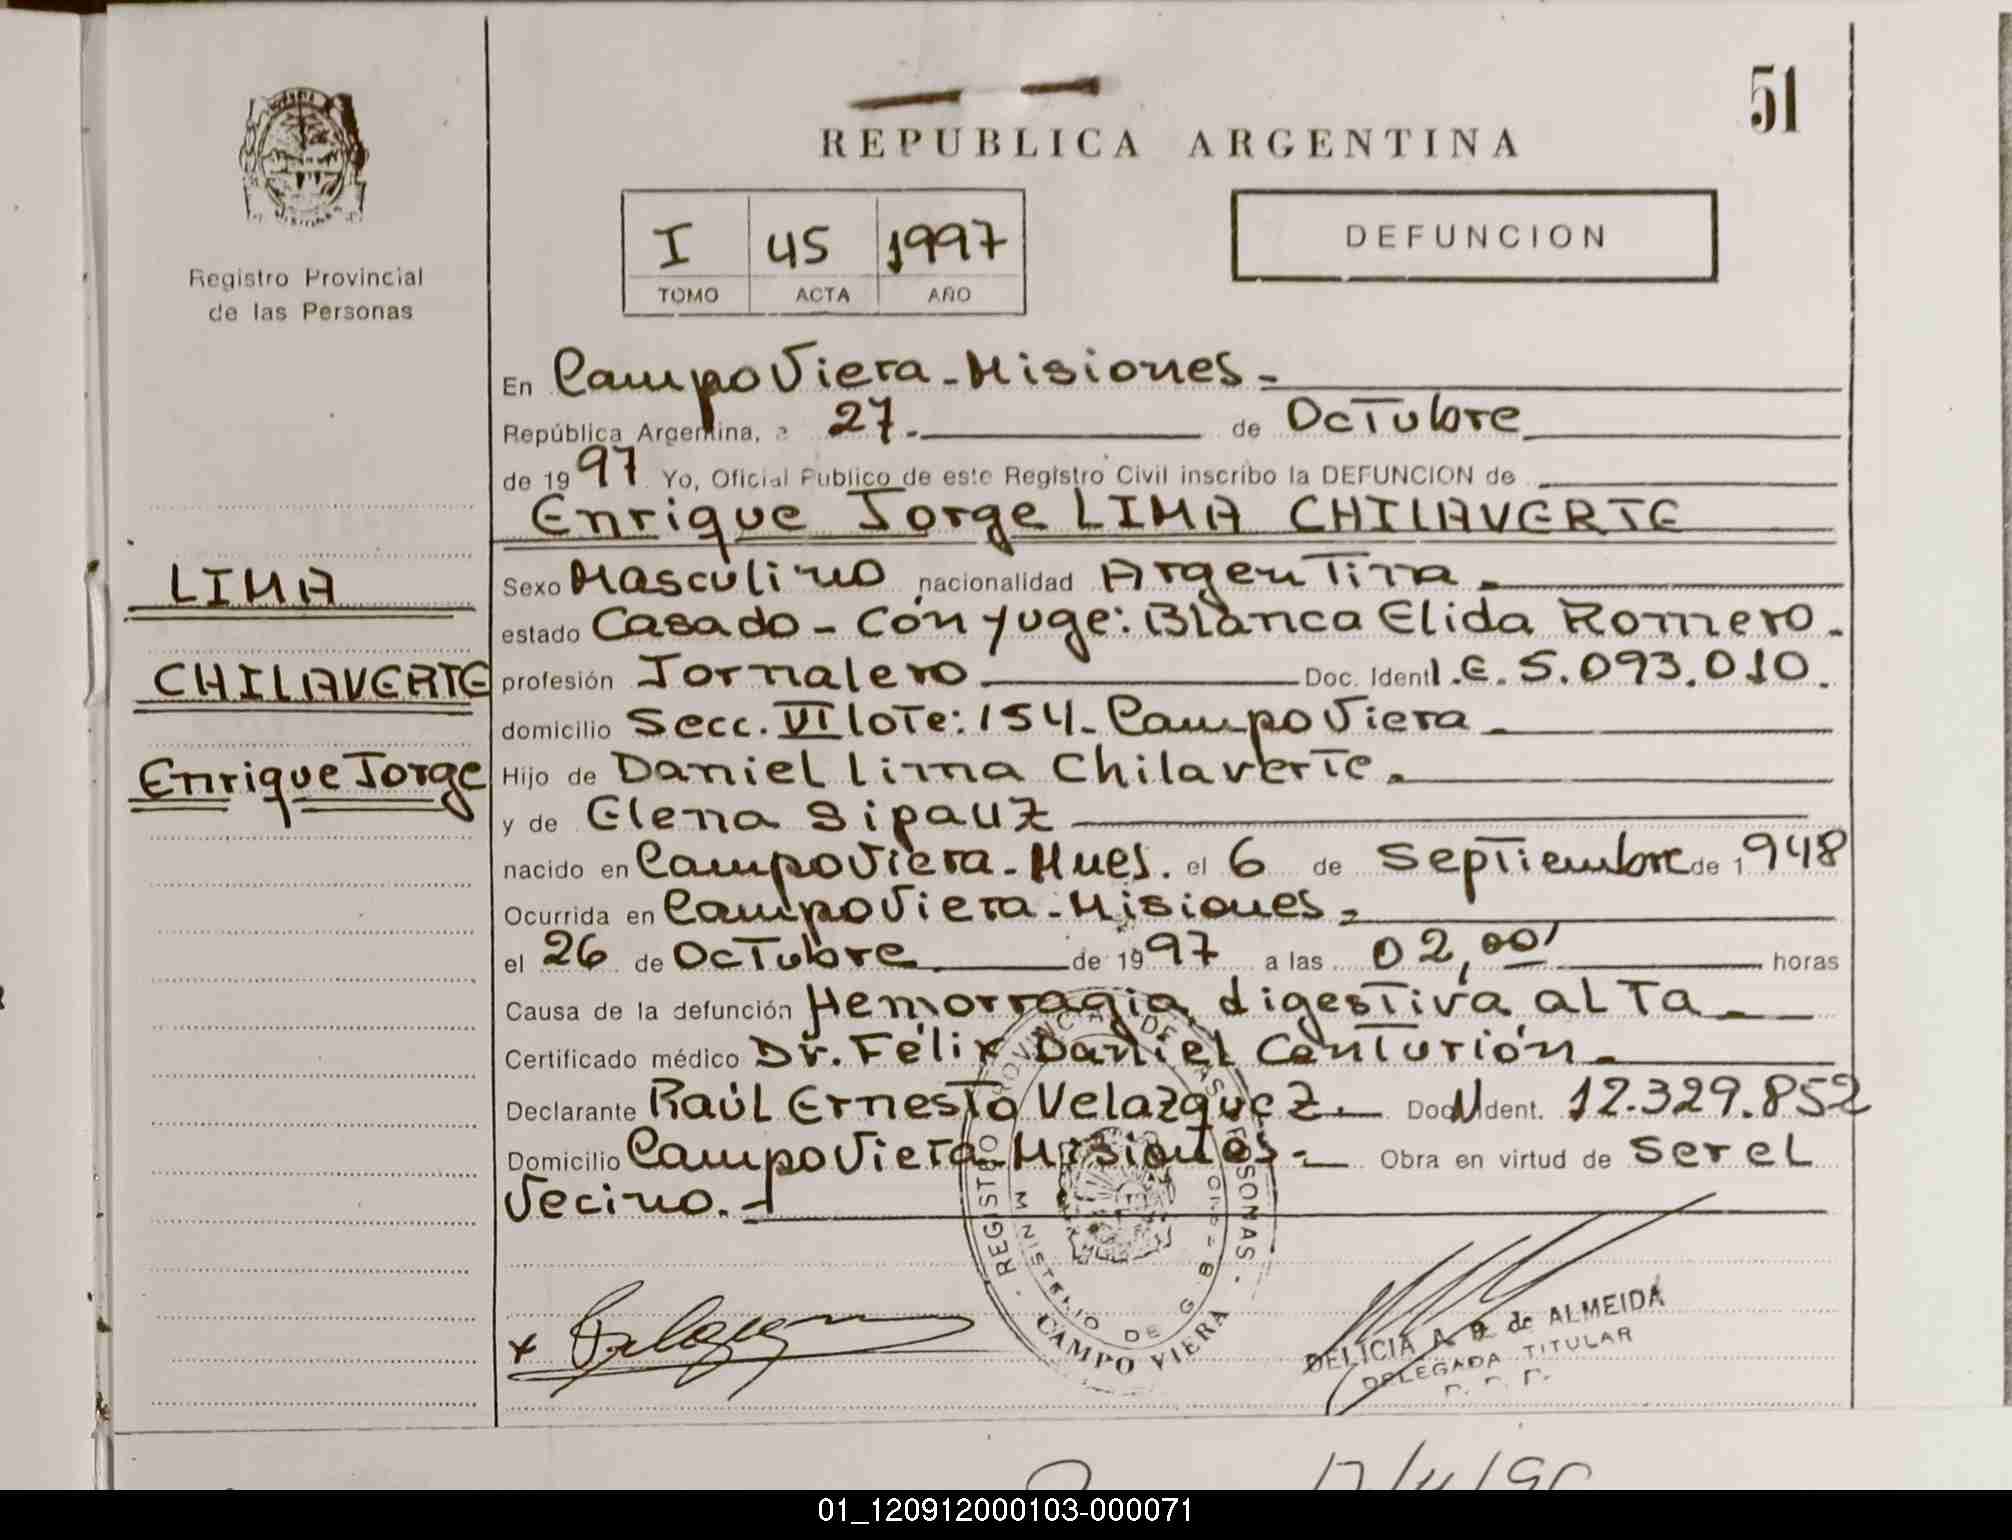 51
REPUBLICA ARGENTINA
Registro Provincial
de las Personas
I 45 1997
TOMO ACTA AÑO
DEFUNCION
En Campo Viera - Misiones -
República Argentina, a 27. de Octubre
de 1997 Yo, Oficial Publico de este Registro Civil inscribo la DEFUNCION de
Enrique Jorge LIMA CHILAVERTE
LIMA
CHILAVERTE
Enrique Jorge
Sexo Masculino nacionalidad Argentina.
estado Casado - Cónyuge: Blanca Elida Romero.
profesión Jornalero Doc. Ident L.E. 5.093.010.
domicilio Secc. VI lote: 154. Campo Viera
Hijo de Daniel Lima Chilaverte.
y de Elena Sipauz
nacido en Campo Viera - Mnes. el 6 de Septiembre de 1948
Ocurrida en Campo Viera - Misiones.
el 26 de Octubre de 1997 a las 02,00' horas
Causa de la defunción Hemorragia digestiva alta
Certificado médico Dr. Félix Daniel Centurión.
Declarante Raúl Ernesto Velazquez. Doc. Ident. 12.329.852
Domicilio Campo Viera - Misiones. Obra en virtud de ser el
vecino.
REGISTRO PROVINCIAL DE LAS PERSONAS
MINISTERIO DE G
CAMPO VIERA
DELICIA A. de ALMEIDA
DELEGADA TITULAR
01_120912000103-000071